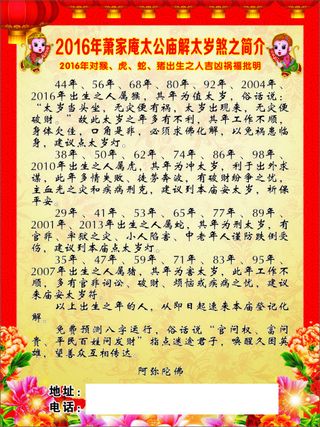 2016年萧家庵太公庙解太岁煞之简介
2016年对猴、虎、蛇、猪出生之人吉凶祸福批明
44年、56年、68年、80年、92年、2004年、
2016年出生之人属猴，其年为值太岁，俗话说：
“太岁当头坐，无灾便有祸，太岁出现来，无灾便
破财。”故此太岁之年多有不利，其年工作不顺，
身体欠佳，口角是非，必须求佛化解，以免祸患临
身，建议点太岁灯。
38年、50年、62年、74年、86年、98年、
2010年出生之人属虎，其年为冲太岁，利于出外求
财，此年多情失败、徒劳奔波，有破财纷争之忧，
主血光之灾和疾病刑克，建议到本庙安太岁，祈保
平安。
29年、41年、53年、65年、77年、89年、
2001年、2013年出生之人属蛇，其年为刑太岁，有
官非、牢狱之灾、小人陷害、中老年人谨防跌倒受
伤，建议到本庙点太岁灯。
35年、47年、59年、71年、83年、95年、
2007年出生之人属猪，其年为害太岁，此年工作不
顺，多有官非词讼、破财、烦恼或疾病之忧，建议
来庙安太岁符
以上出生之年的人，从即日起速来庙登记化
解。
免费预测八字运行，俗语说“官问权、富问
贵、平民百姓问发财”指点迷途君子，唤醒久困英
雄，望善众互相传达
阿弥陀佛
地址：
电话：